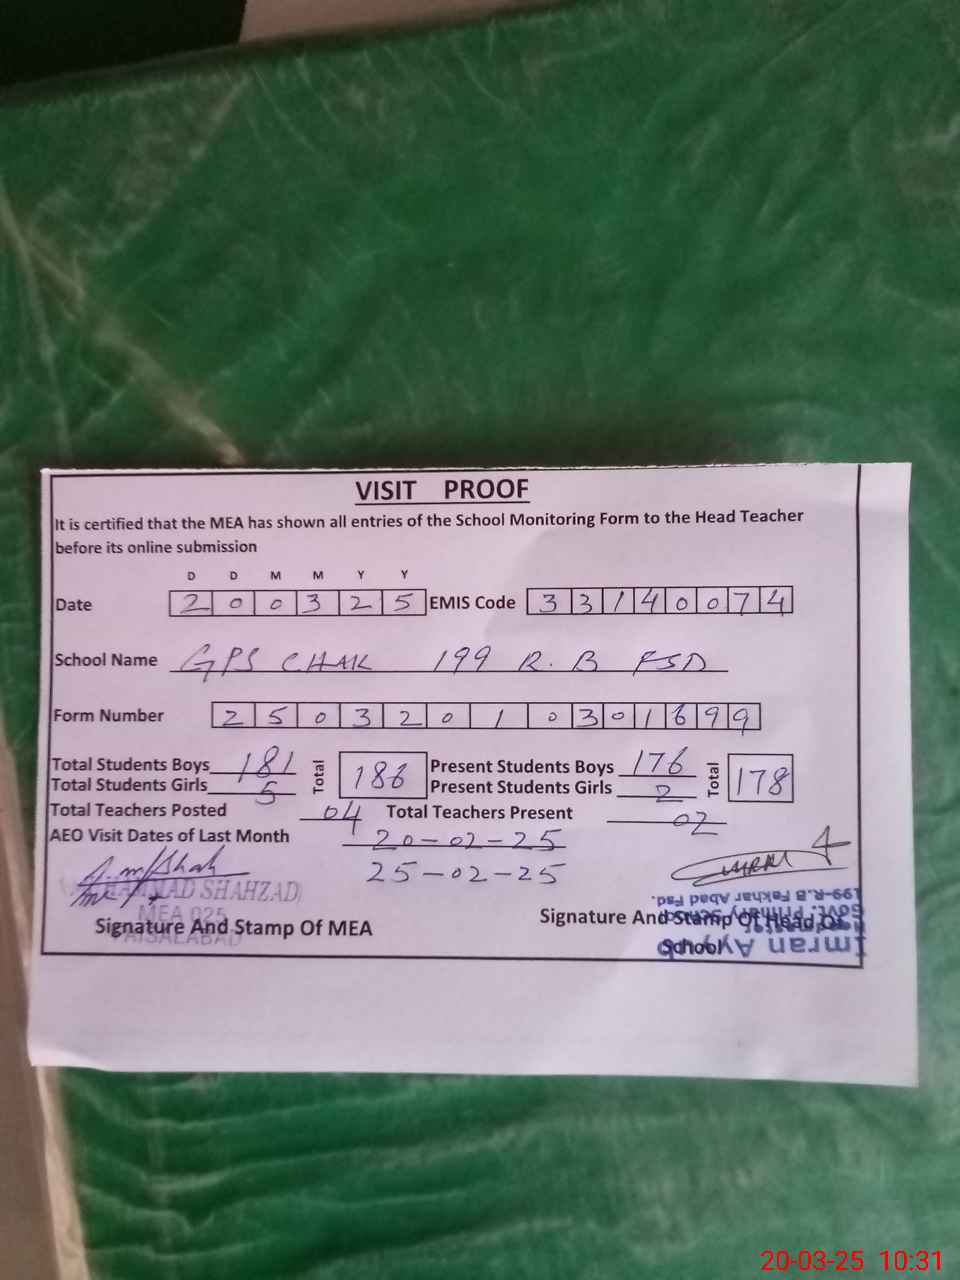 VISIT PROOF
It is certified that the MEA has shown all entries of the School Monitoring Form to the Head Teacher
before its online submission
D D M M Y Y
Date 2 0 0 3 2 5 EMIS Code 3 3 1 4 0 0 7 4
School Name GPS CHAK 199 R.B FSD
Form Number 2 5 0 3 2 0 1 0 3 0 1 6 9 9
Total Students Boys 181 Total 186 Present Students Boys 176 Total 178
Total Students Girls 5 Present Students Girls 2
Total Teachers Posted 04 Total Teachers Present 02
AEO Visit Dates of Last Month 20-02-25
25-02-25
MUHAMMAD SHAHZAD
MEA 025
FAISALABAD
Signature And Stamp Of MEA
Signature And Stamp Of Head Of
School
Imran Ayyub
Headmaster
Govt. Primary School
199-R.B Fakhar Abad Fsd.
20-03-25 10:31